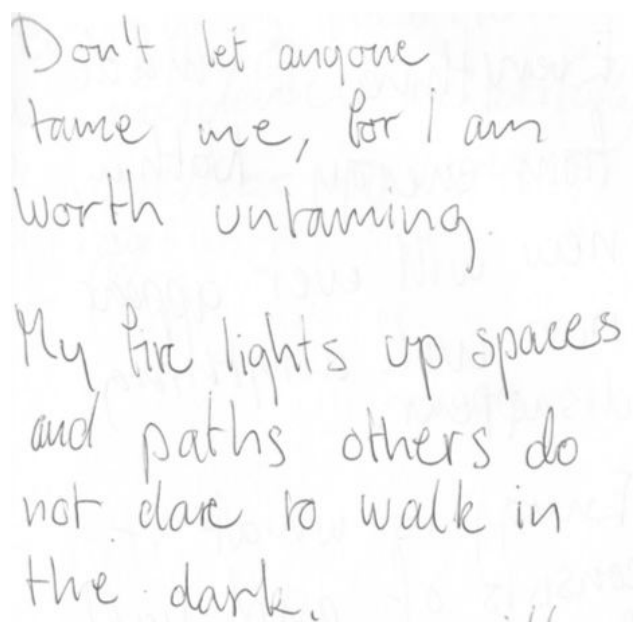 Don't let anyone
tame me, for i am
worth untaming.
My fire lights up spaces
and paths others do
not dare to walk in
the dark.